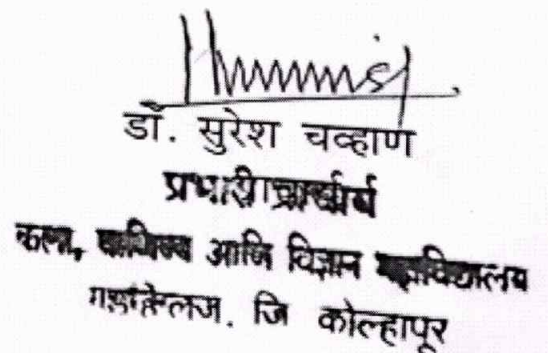 डॉ. सुरेश चव्हाण
प्रभारी प्राचार्य
कला, वाणिज्य आणि विज्ञान महाविद्यालय
गडहिंग्लज. जि कोल्हापूर